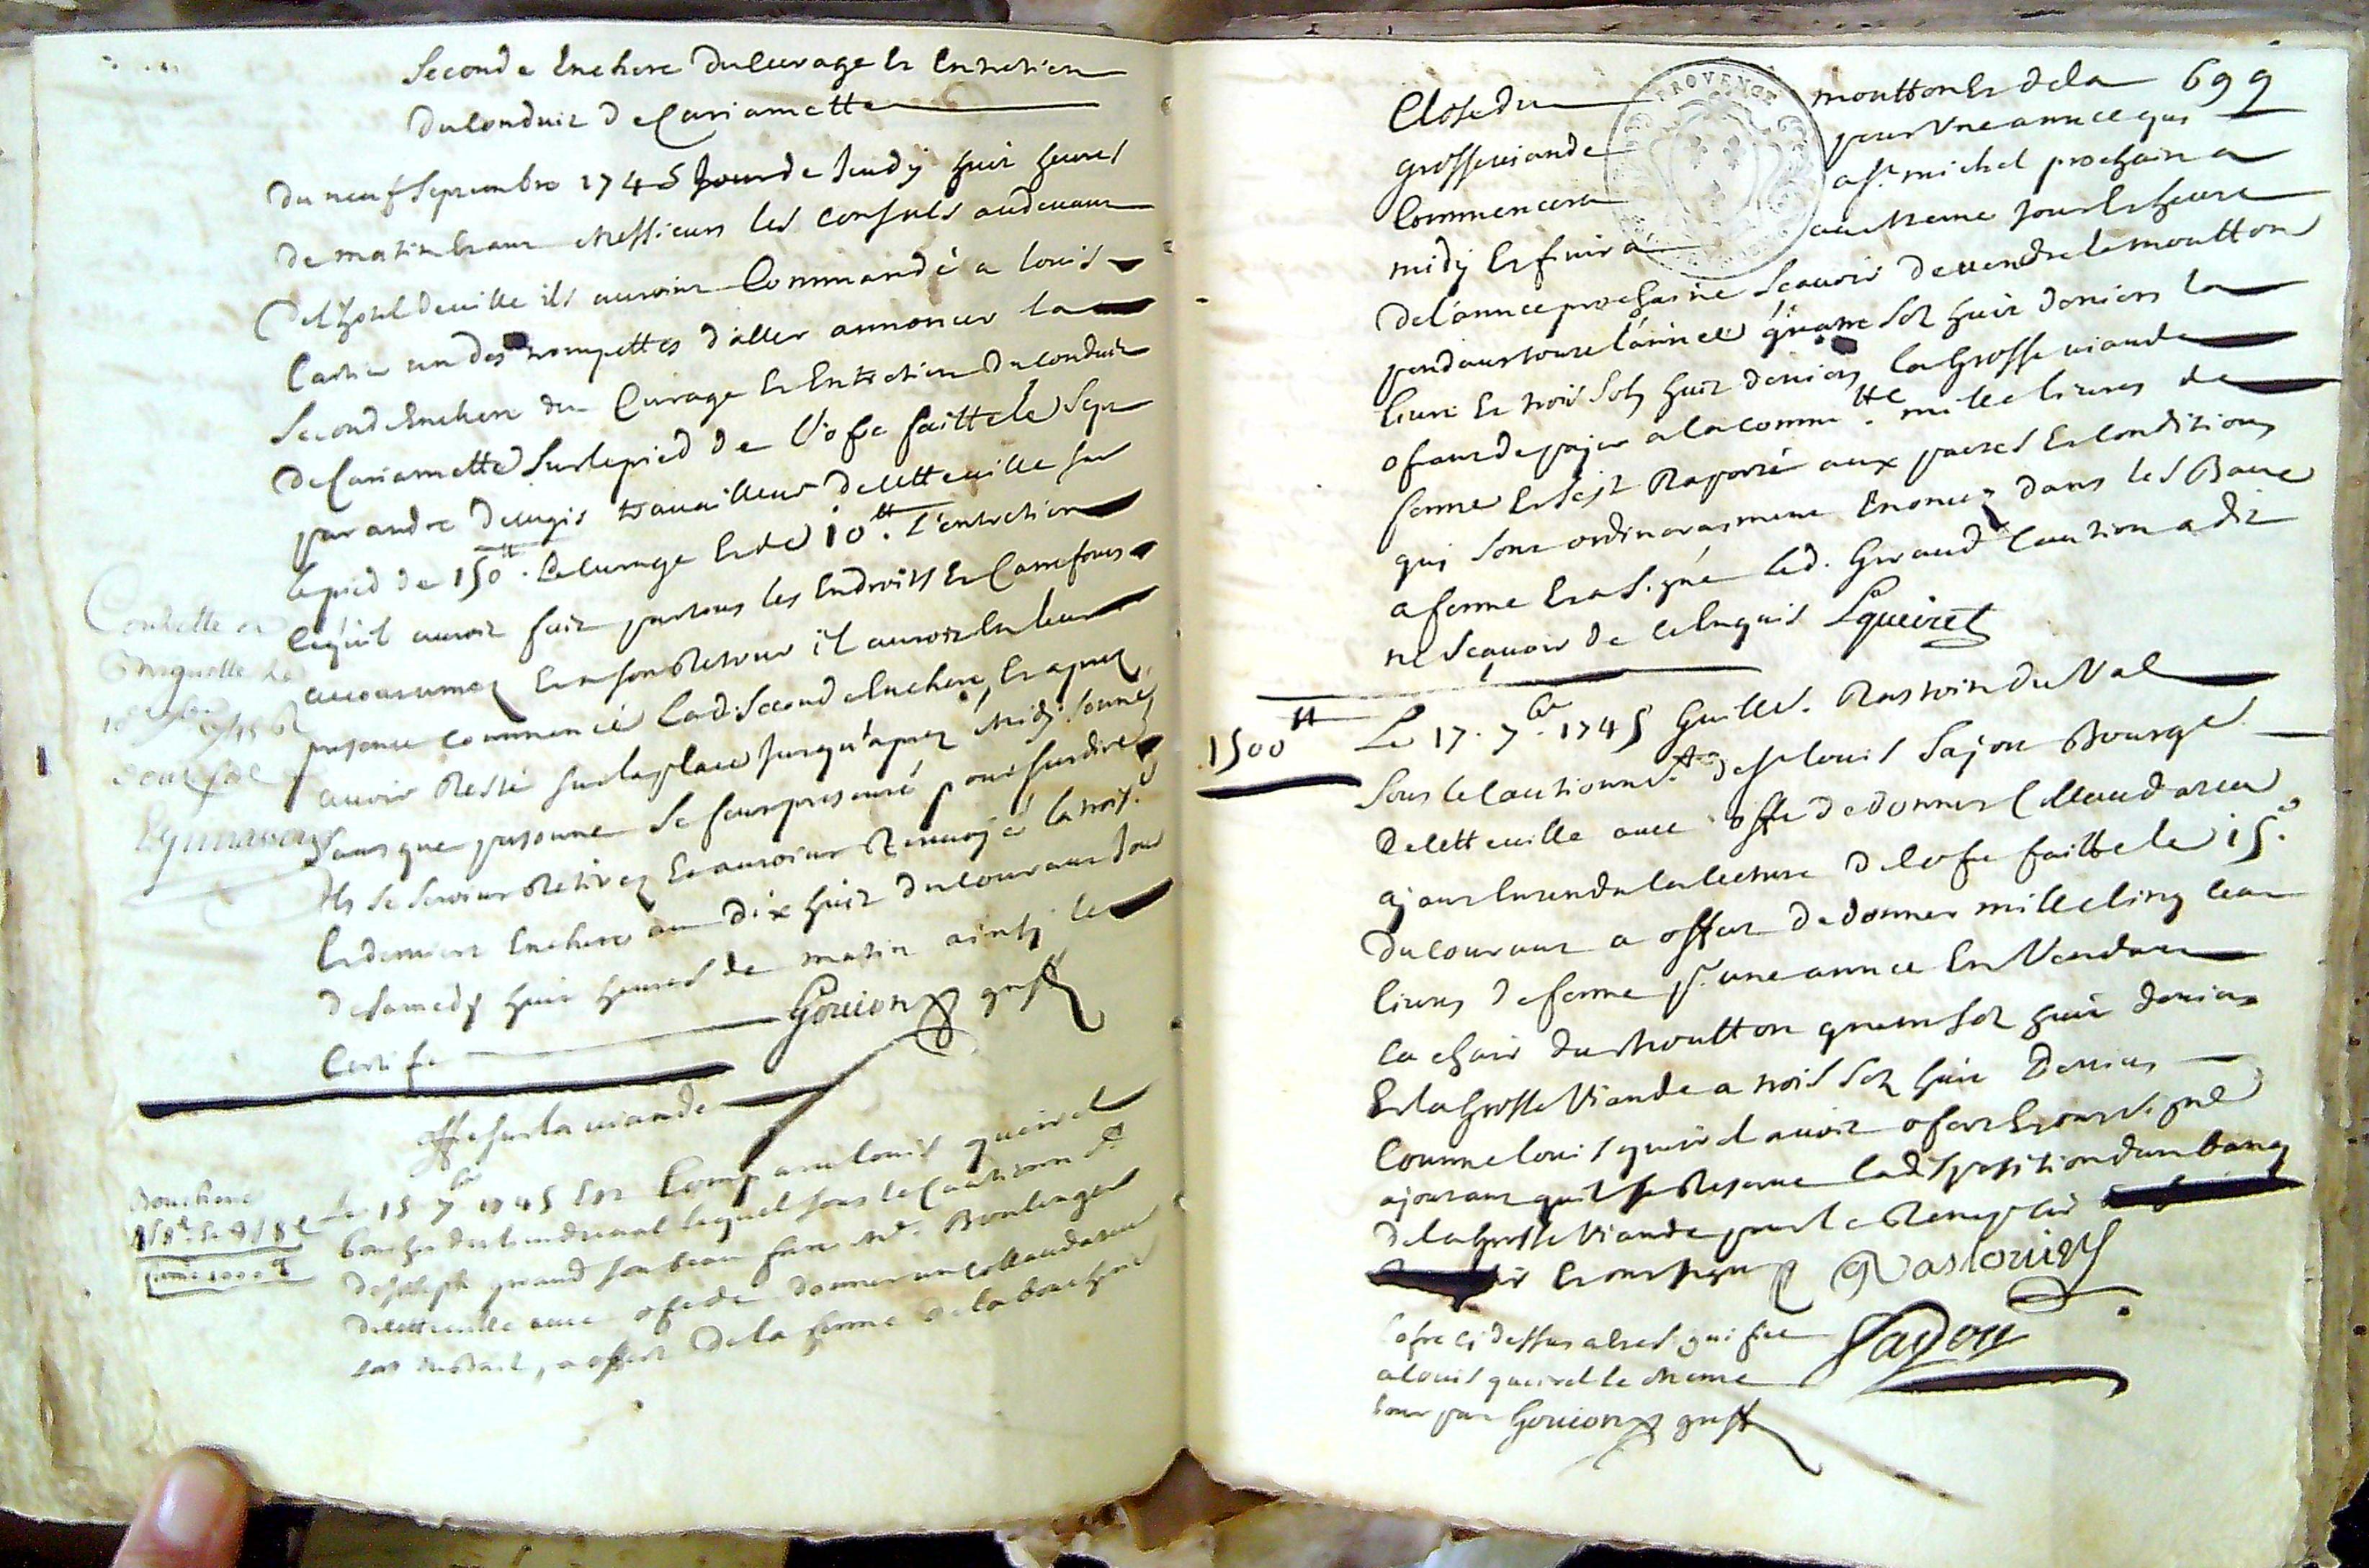 Seconde Enchere du Curage Et Entretien
du Conduit de Cariamette
du neuf Septembre 1745 Jour de Jeudy huit heures
de matin Etant Messieurs les Consuls au devant
de l'hotel de ville ils auroint Commandé a louis
un des trompettes d'aller annoncer la
Seconde Enchere du Curage Et Entretien du Conduit
de Cariamette Sur le pied de l'ofre faitte le Sept
par andre travailleur de cette ville sur
le pied de 150tt. Le Curage Et de 10tt. L'entretien
Ce qu'il auroit fait par tous les Endroits Et Carrefours
accoutumez Et a son Retour il auroit En leur
presence commencé lad. Seconde Enchere, Et apres
avoir Resté sur la place Jusqu'apres Midy Sonnés
Sans que personne Se feut presenté pour Surdire
Ils Se Seroint Retirez Et auroint Renvoyé la trois.e
Et derniere Enchere au dix huit du Courant Jour
de Samedy huit heures de matin ainsy le
Certifie Gouion greff
offre sur la viande
Boucherie
Le 15 7bre 1745 Est Comparu louis queirel
boucher lequel sous le Cautionn.t
de Joseph giraud son beau frere M.e Boulenger
de cette ville avec ofre de donner un Collaudateur
a offert de la ferme de la boucherie
699
Close du moutton Et de la
grosse viande pour Une annee qui
Commencera a St. michel prochain a
midy Et finira au Meme Jour Et heure
de l'annee prochaine Scavoir de vendre le moutton
pendant toute l'année quatre Sol huit deniers la
livre Et trois Sols huit deniers la Grosse viande
ofrant de payer a la comm.tté mille livres de
ferme Et s'est Raporté aux pactes Et Conditions
qui Sont ordinairement Enoncez dans les Baux
a ferme Et a Signé led. Giraud Caution a dit
ne Scavoir de ce Enquis Lqueirel
1500tt
Le 17. 7bre. 1745 Guille. Rastoin du Val
Sous le Cautionne.t de Sr louis Sajou Bourge
de cette ville avec offre de donner Collaudateur
ayant Entendu la lecture de l'ofre faitte le 15.e
du Courant a offert de donner mille Cinq Cent
livres de ferme p.r une annee En Vendant
la chair du Moutton quatre sol huit deniers
Et la Grosse Viande a trois Sol huit Deniers
Comme louis queirel avoit ofert Et ont Signé
ajoutant qu'il se Reserve la disposition d'un banq
de la Grosse Viande pour le Remplir
Et ont signé Rastouin
L'ofre cy dessus a Eté signifiée Sajou
a louis queirel le Meme
Jour par Gouion greff